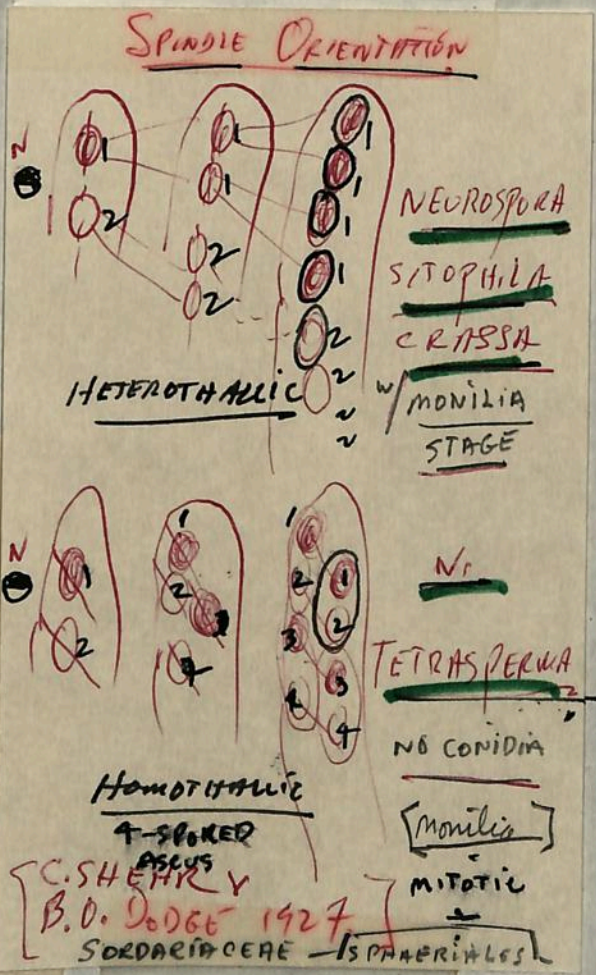 SPINDLE ORIENTATION
N
1
2
1
1
2
2
1
1
1
1
2
2
2
2
NEUROSPORA
SITOPHILA
CRASSA
w/ MONILIA
STAGE
HETEROTHALLIC
N
1
2
1
2
3
4
1
2
3
4
1
2
3
4
N.
TETRASPERMA
NO CONIDIA
[Monilia]
MITOTIC
HOMOTHALLIC
4-SPORED
ASCUS
C. SHEAR Y
B.O. DODGE 1927
SORDARIACEAE - SPHAERIALES